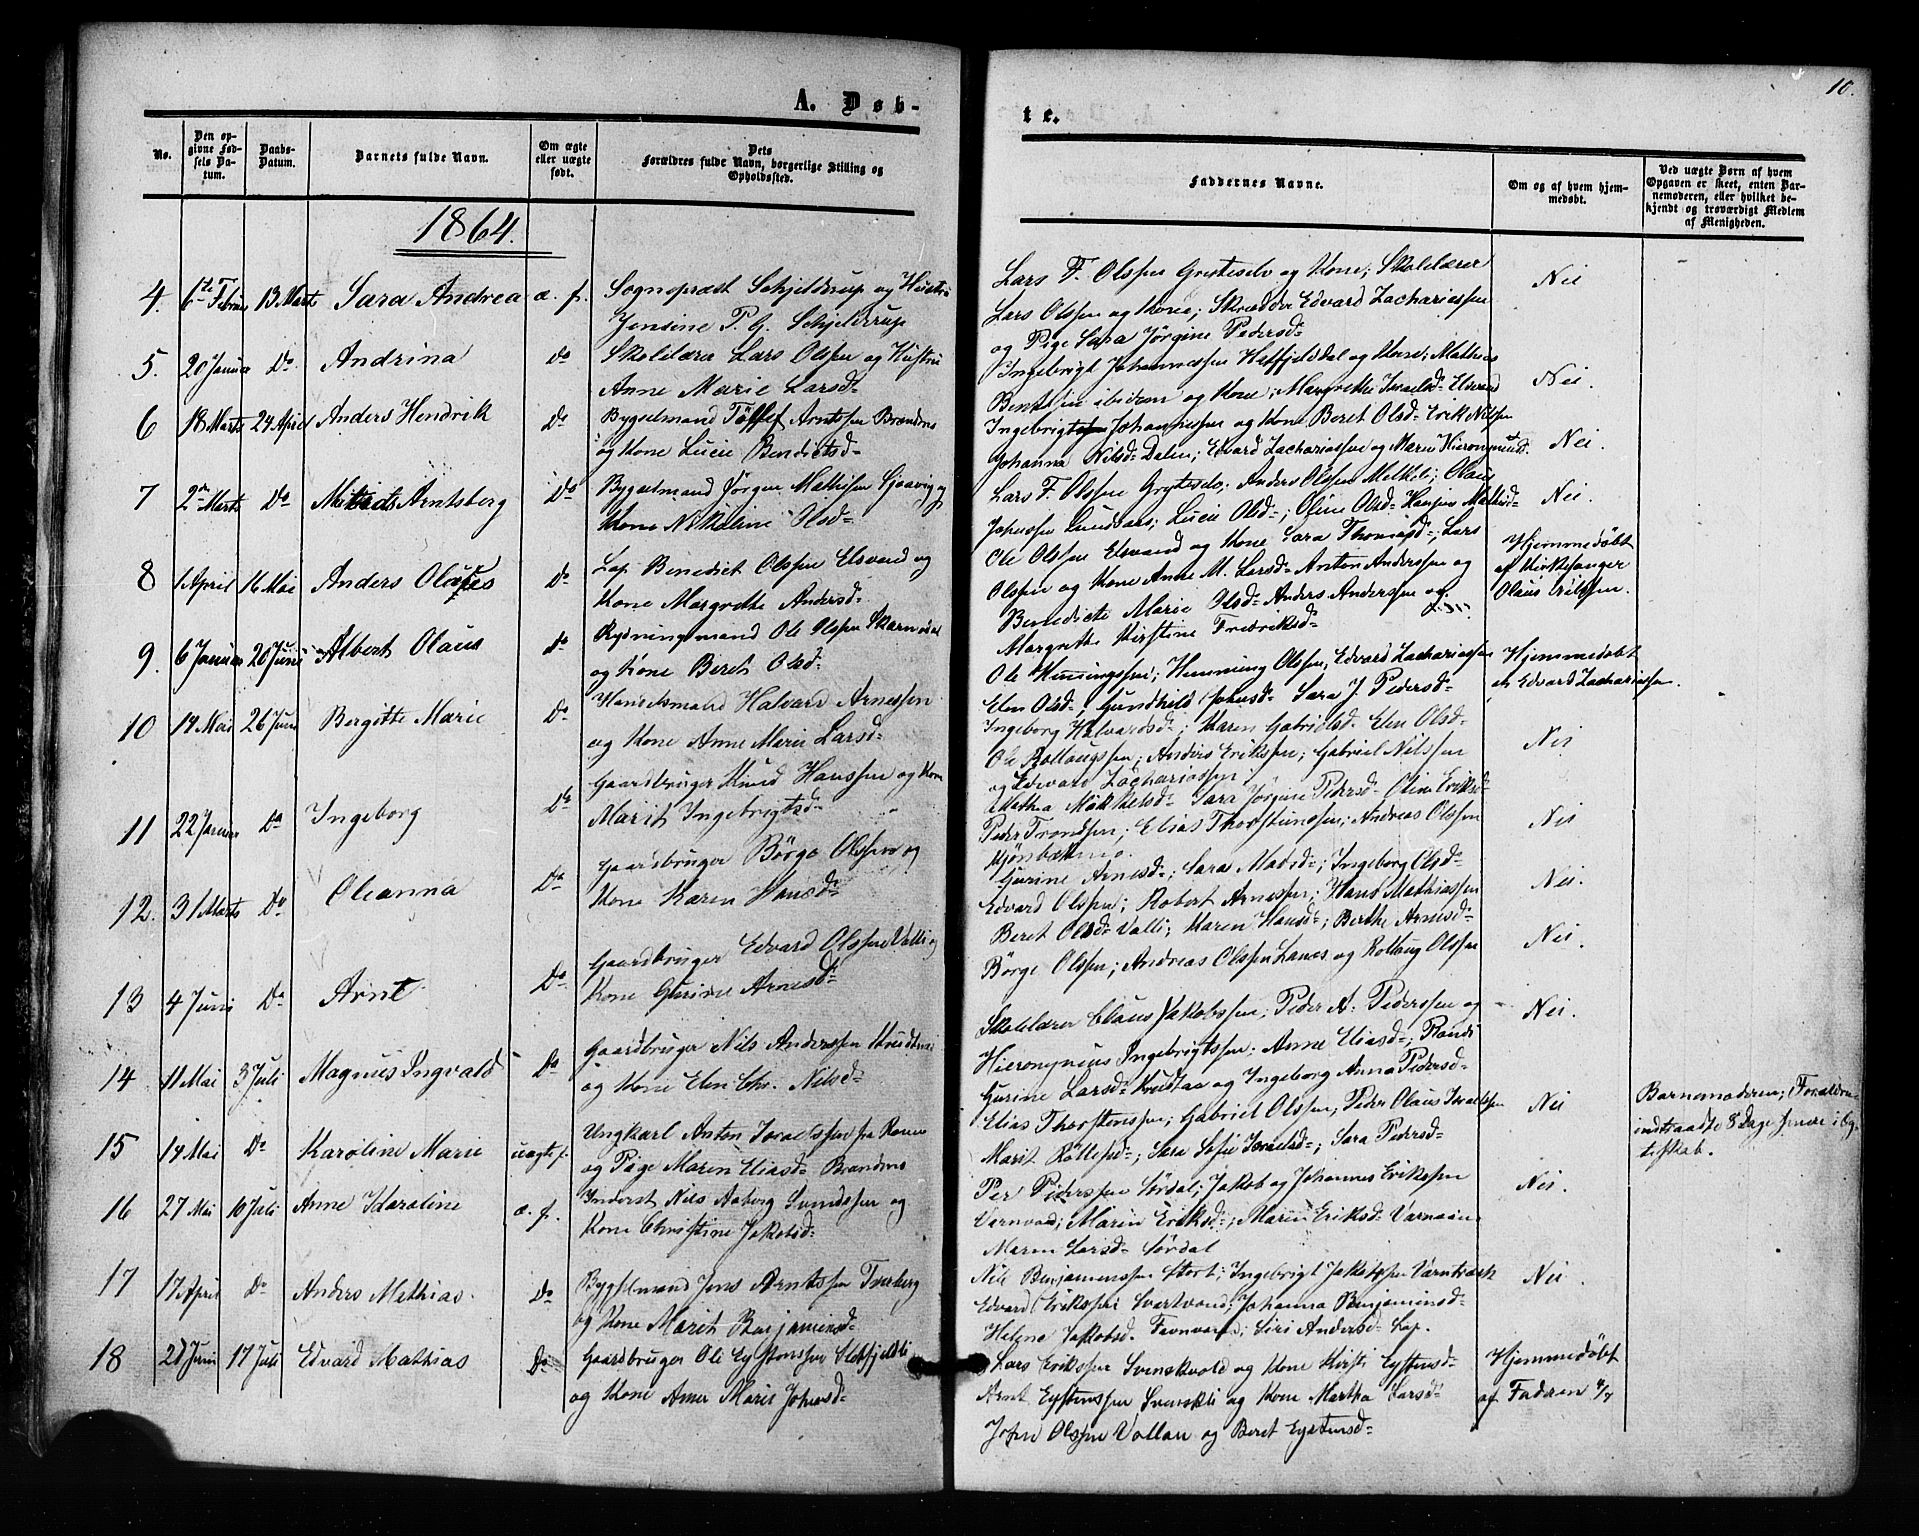 10.
A. Døb-
te.
No.
Den op-
givne Fød-
sels Da-
tum.
Daabs-
Datum.
Barnets fulde Navn.
Om ægte
eller uægte
født.
Dets
Forældres fulde Navn, borgerlige Stilling og
Opholdssted.
Faddernes Navne.
Om og af hvem hjem-
medøbt.
Ved uægte Børn af hvem
Opgaven er skeet, enten Bar-
nemoderen, eller hvilket be-
kjendt og troværdigt Medlem
af Menigheden.
1864.
4. 6te Febru 13 Marts Sara Andrea æ. f. Sognepræst Schjelderup og Hustru
Jensine P. G. Schjelderup
Lars F. Olssen Gryteselv og Kone; Skolelærer
Lars Olssen og Kone; Skrædder Edvard Zachariassen
og Pige Sara Jørgine Pedersd
Nei
5. 20 Januar Do Andrina Do Skolelærer Lars Olssen og Hustru
Anne Marie Larsd
Ingebrigt Johannessen Hatfjelddal og Kone; Mathias
Bentssen ibidem og Kone; Margrethe Israelsd Elsvand
Nei
6 18 Marts 24 April Anders Hendrik Do Bygselmand Tøllef Arntssen Brændmo
og Kone Lucie Benedictsd
Ingebrigt Johannessen og Kone Beret Olsd Erik Nilssen
Johanna Nilsd Dalen; Edvard Zachariassen og Maren Hieronymusd
Nei.
7 2n Marts Do Arntsberg Do Bygselmand Jørgen Mathisen Gjaavig og
Kone Nikoline Olsd
Lars F. Olssen Gryteselv; Anders Olssen; Olaus
Johnssen; Lucie Olsd; Oline Olsd
Nei
8 1 April 16 Mai Anders Do Lap Benedict Olssen Elsvand og
Kone Margrethe Andersd
Ole Olssen Elsvand og Kone Sara Thomasd; Lars
Olssen og Kone Anne M. Larsd Anton Anderssen og
Benedicte Marie Olsd Anders Anderssen og
Margrethe Kirstine Fredriksd
Hjemmedøbt
af Kirkesanger
Olaus Erikssen.
9. 6 Januar 20 Juni Albert Olaus Do Rydningsmand Ole Olssen Skarmodal
og Kone Beret Olsd
Ole Henningssen; Henning Olssen, Edvard Zachariassen
Elen Olsd, Gundhild Johnsd Sara J. Pedersd
Hjemmedøbt
af Edvard Zachariassen.
10 14 Mai 26 Juni Bergitte Marie Do Handelsmand Halvard Arnessen
og Kone Anne Marie Larsd
Ingeborg Halvardsd; Karen Gabrielsd. Elen Olsd
Ole Rollaugssen; Anders Erikssen; Gabriel Nilssen
og Edvard Zachariassen
Nei
11 22 Januar Do Ingeborg Do Gaardbruger Knud Hanssen og Kone
Marit Ingebrigtsd
Mathea Mikkelsd Sara Jørgine Pedersd Oline Eriksd
Peder Trondsen; Elias Thorstenssen; Andreas Olssen
Kjønbækmo.
Nei
12. 31 Marts Do Oleanna Do Gaardbruger Børge Olssen og
Kone Karen Hansd
Gurine Arnesd; Sara Madsd; Ingeborg Olsd
Edvard Olssen; Robert Arnessen; Hans Mathiassen
Nei.
13 4 Juni Do Arnt Do Gaardbruger Edvard Olssen Valli og
Kone Gurine Arnesd
Beret Olsd Valli; Karen Hansd; Berthe Arnesd
Børge Olssen; Andreas Olssen Lanes og Rollaug Olssen
Nei.
14 11 Mai 3 Juli Magnus Ingvald Do Gaardbruger Nils Anderssen
og Kone Elen Chr. Nilsd
Skolelærer Claus Jakobssen; Peder A. Pederssen og
Hieronymus Ingebrigtssen; Anne Eliasd; Randi
Gurine Larsd Krudtaa og Ingeborg Anna Pedersd
Nei.
15 14 Mai Do Karoline Marie uægte f. Ungkarl Anton Israelssen fra Ranen
og Pige Maren Eliasd Brændmo
Elias Thorstenssen; Gabriel Olssen; Peder Olaus Israelssen
Marit; Sara Sofie Israelsd; Sara Pedersd
Nei
Barnemoderen; Forældrene
indtraadte 8 Dage senere i Æg-
teskab.
16 27 Mai 10 Juli Anne Karoline æ. f. Inderst Nils Aaberg Svendssen og
Kone Christine Jakobsd
Per Pederssen Sørdal; Jakob og Johannes Erikssen
Varnvand; Maren Eriksd; Maren Eriksd
Maren Larsd Sørdal
Nei.
17 17 April Do Anders Mathias Do Bygselmand Jens Arntssen Tverberg
og Kone Marit Benjaminsd
Nils Benjaminssen Stort; Ingebrigt Jakobssen Varntræsk
Edvard Erikssen Svartvand; Johanna Benjaminsd
Helene Jakobsd. Famvand; Siri Andersd Lap.
Nei.
18 21 Juni 17 Juli Edvard Mathias Do Gaardbruger Ole Eystenssen
og Kone Anne Marie Johnsd
Lars Erikssen Svenskvold og Kone Kirsti Eystensd
Arnt Eystenssen Svenskli og Kone Martha Larsd
John Olssen Vollan og Beret Eystensd
Hjemmedøbt
af Fadren 4/7